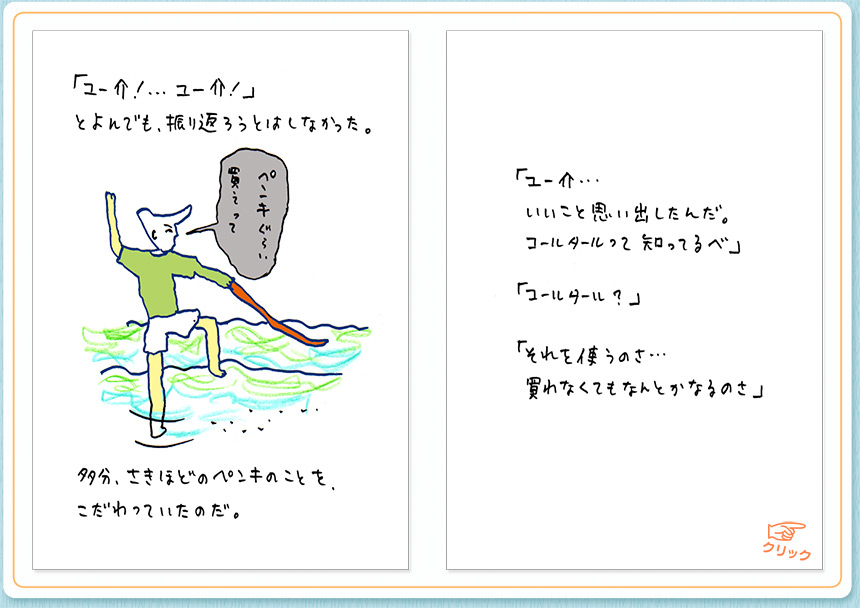 「ユー介！…ユー介！」
とよんでも、振り返ろうとはしなかった。
ペンキぐらい
買えって
多分、さきほどのペンキのことを、
こだわっていたのだ。
「ユー介…
いいこと思い出したんだ。
コールタールって知ってるべ」
「コールタール？」
「それを使うのさ…
買わなくてもなんとかなるのさ」
クリック